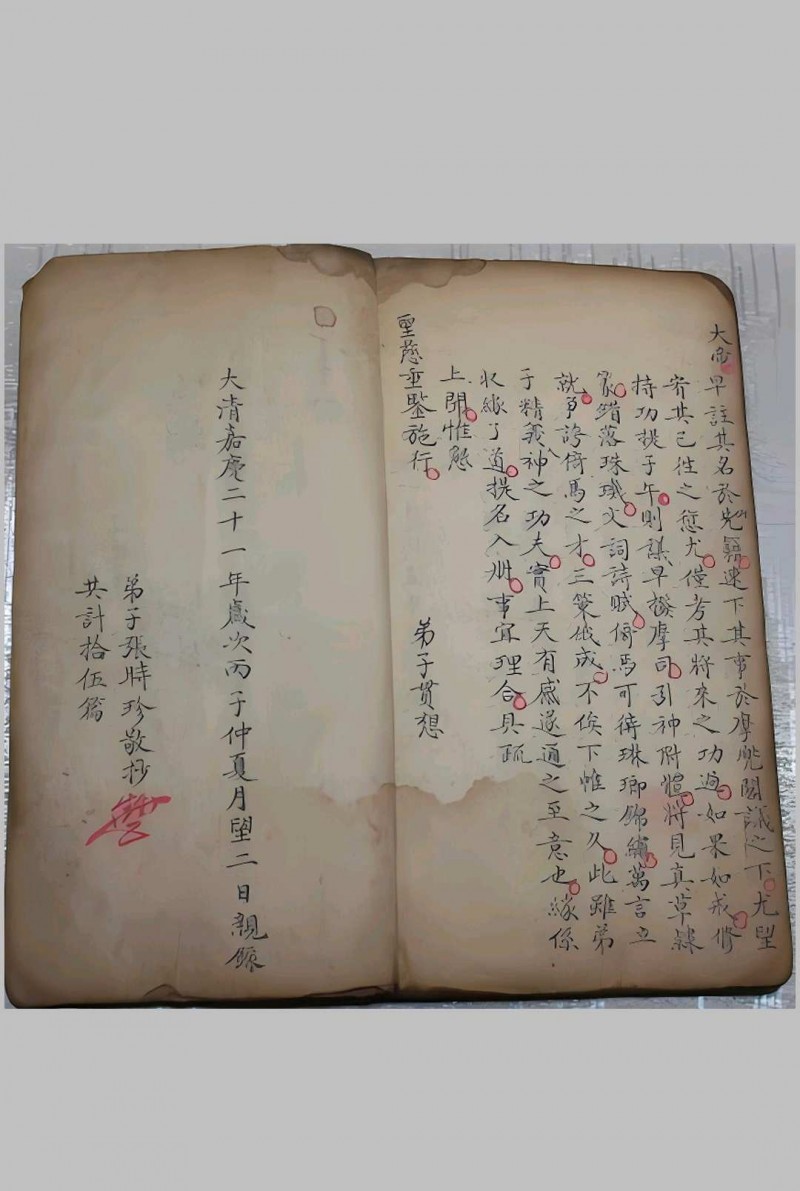 大帝早註其名於先籍速下其事於摩兜閣議之下尤望
宥其已往之愆尤僅考其將來之功過如果如戒修
持功提子午則議早撥摩司引神附體將見真草隸
篆錯落珠璣文詞詩賦倚馬可待琳瑯錦繡萬言立
就爭誇倚馬之才三策低成不俟下帷之久此雖弟
子精義神之功夫實上天有感遂通之至意也緣係
收緣了道提名入冊事宜理合具疏
上聞惟懇
聖慈垂鑒施行
弟子貫想
大清嘉慶二十一年歲次丙子仲夏月望二日親錄
弟子張時珍敬抄
共計拾伍篇